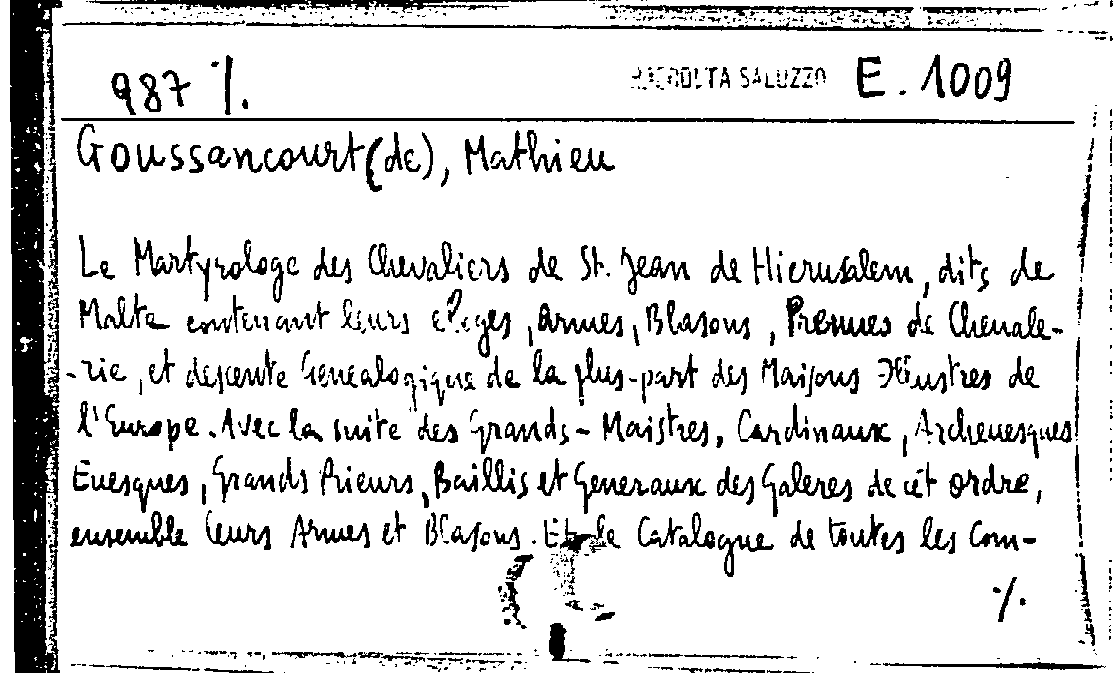 987 ·/. RACCOLTA SALUZZO E. 1009
Goussancourt (de), Mathieu
Le Martyrologe des Chevaliers de St. Jean de Hierusalem, dits de
Malte contenant leurs eloges, Armes, Blasons, Preuues de Cheuale-
-rie, et descente Genealogique de la plus-part des Maisons Illustres de
l'Europe. Avec la suite des Grands-Maistres, Cardinaux, Archeuesques
Euesques, Grands Prieurs, Baillis et Generaux des Galeres de cét ordre,
ensemble leurs Armes et Blasons. Et le Catalogue de toutes les Com-
·/.